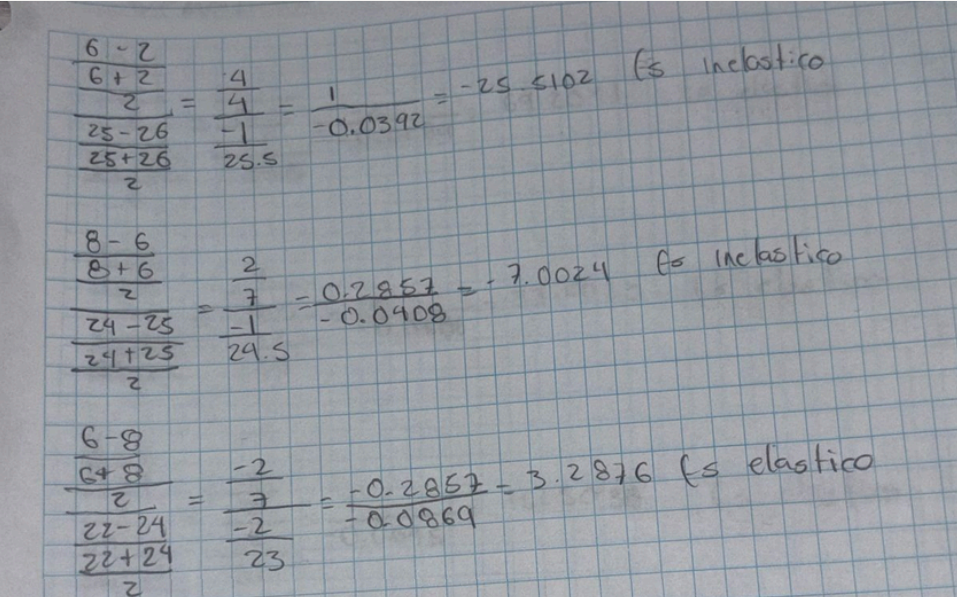 6 - 2
6 + 2
2
25 - 26
25 + 26
2
= 4
4
-1
25.5
= 1
-0.0392
= -25.5102 Es inelastico
8 - 6
8 + 6
2
24 - 25
24 + 25
2
= 2
7
-1
24.5
= 0.2857
-0.0408
= -7.0024 Es inelastico
6 - 8
6 + 8
2
22 - 24
22 + 24
2
= -2
7
-2
23
= -0.2857
-0.0869
= 3.2876 Es elastico